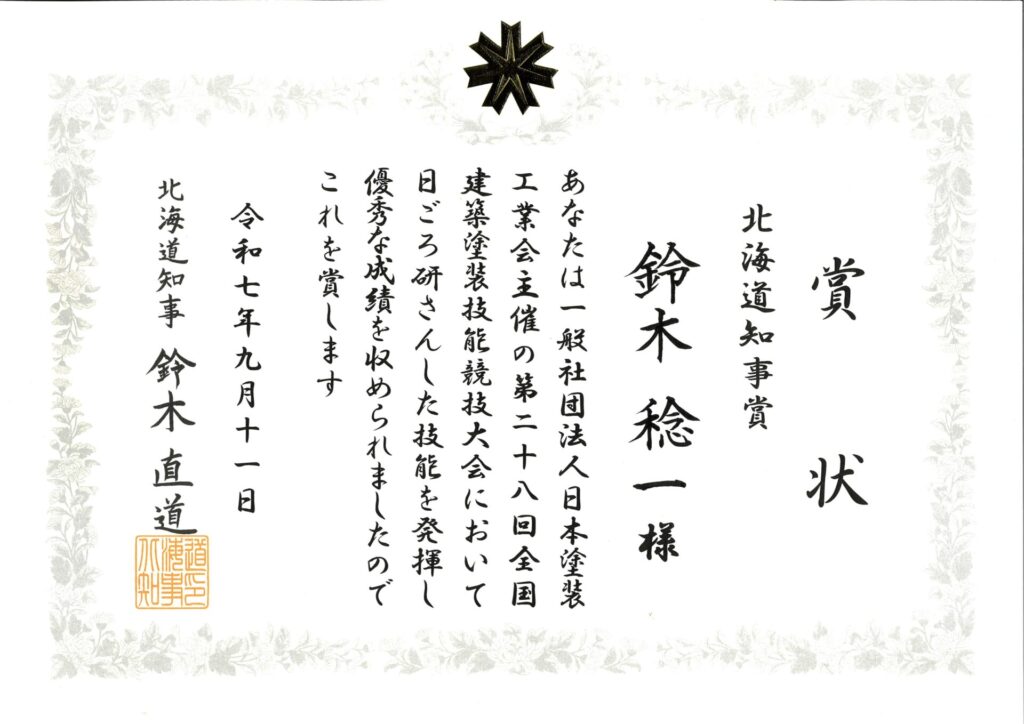 賞状
北海道知事賞
鈴木稔一様
あなたは一般社団法人日本塗装
工業会主催の第二十八回全国
建築塗装技能競技大会において
日ごろ研さんした技能を発揮し
優秀な成績を収められましたので
これを賞します
令和七年九月十一日
北海道知事 鈴木直道
北海道知事印